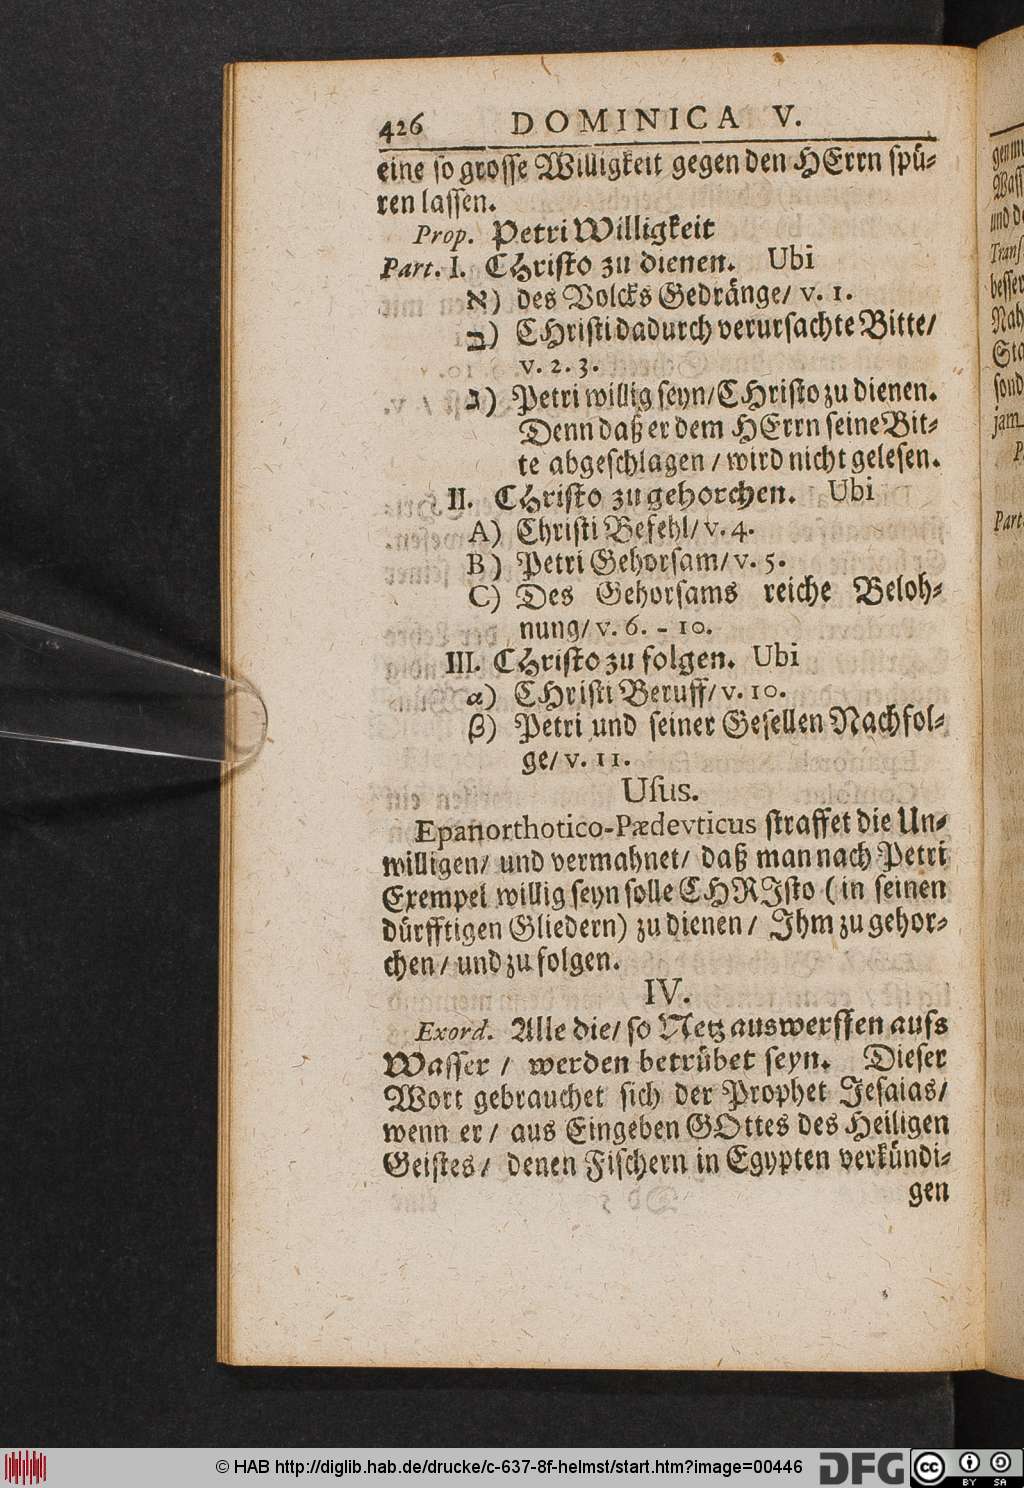 426 DOMINICA V.
eine so grosse Willigkeit gegen den HErrn spü-
ren lassen.
Prop. Petri Willigkeit
Part. I. CHristo zu dienen. Ubi
א) des Volcks Gedränge/ v. 1.
ב) CHristi dadurch verursachte Bitte/
v. 2. 3.
ג) Petri willig seyn/ CHristo zu dienen.
Denn daß er dem HErrn seine Bit-
te abgeschlagen / wird nicht gelesen.
II. CHristo zu gehorchen. Ubi
A) Christi Befehl/ v. 4.
B) Petri Gehorsam/ v. 5.
C) Des Gehorsams reiche Beloh-
nung/ v. 6. - 10.
III. CHristo zu folgen. Ubi
α) CHristi Beruff/ v. 10.
β) Petri und seiner Gesellen Nachfol-
ge/ v. 11.
Usus.
Epanorthotico-Pædevticus straffet die Un-
willigen/ und vermahnet/ daß man nach Petri
Exempel willig seyn solle CHRIsto (in seinen
dürfftigen Gliedern) zu dienen / Ihm zu gehor-
chen / und zu folgen.
IV.
Exord. Alle die/ so Netz auswerffen aufs
Wasser / werden betrübet seyn. Dieser
Wort gebrauchet sich der Prophet Jesaias/
wenn er / aus Eingeben GOttes des Heiligen
Geistes / denen Fischern in Egypten verkündi-
gen
© HAB http://diglib.hab.de/drucke/c-637-8f-helmst/start.htm?image=00446
DFG
cc BY SA